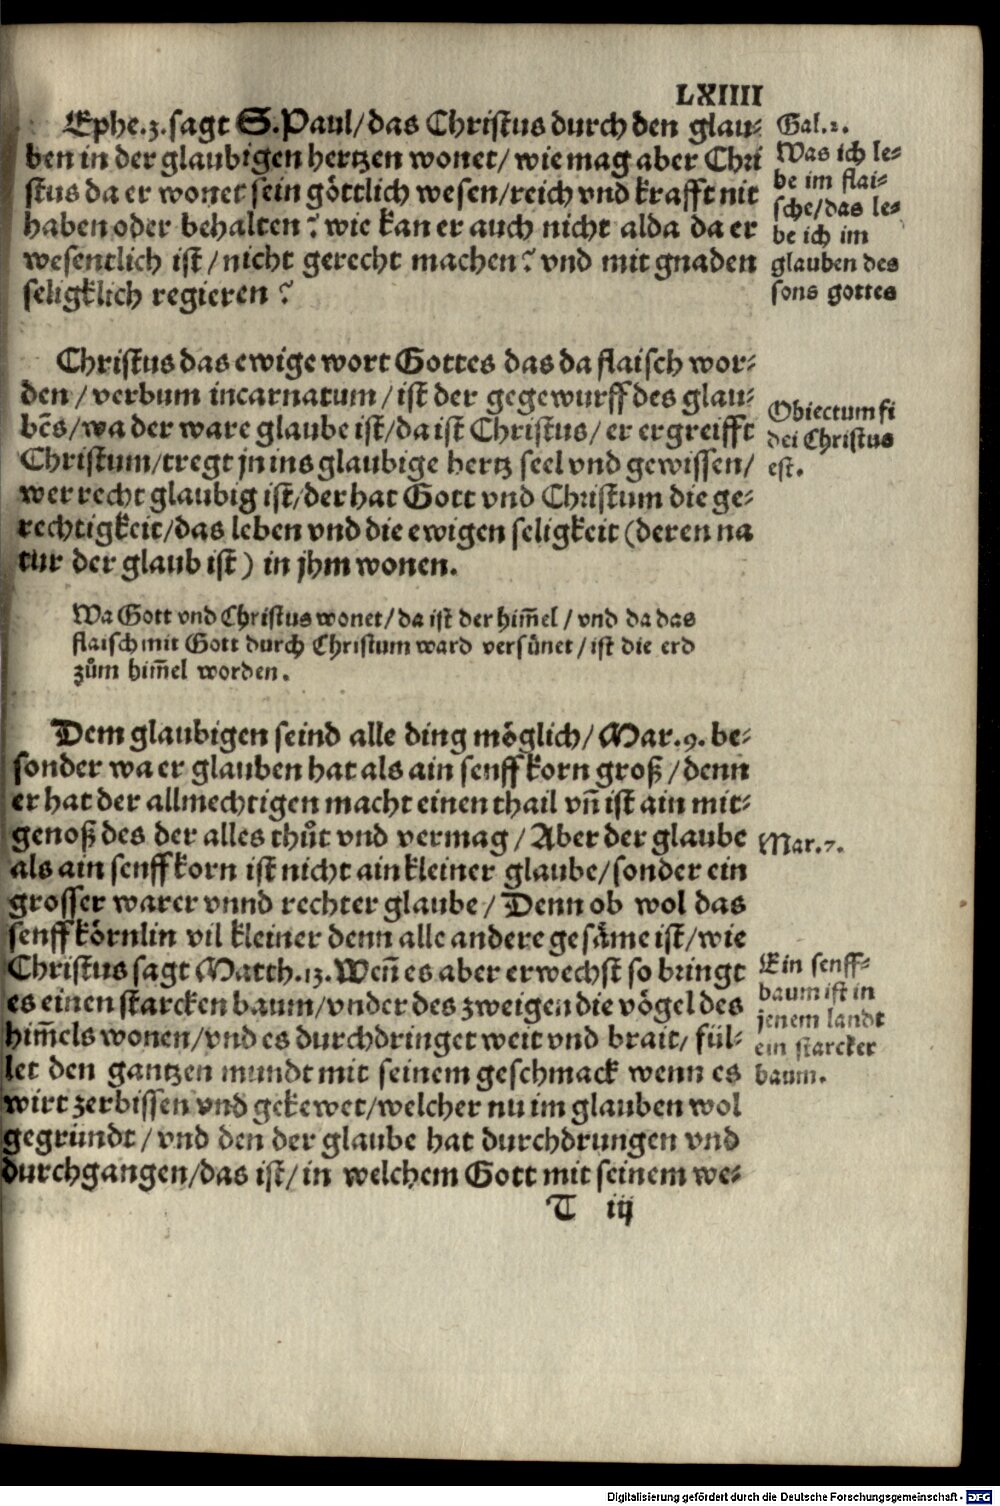 LXIIII
Ephe.3.sagt S.Paul/das Christus durch den glau-
ben in der glaubigen hertzen wonet/wie mag aber Chri
stus da er wonet sein göttlich wesen/reich vnd krafft nit
haben oder behalten? wie kan er auch nicht alda da er
wesentlich ist/nicht gerecht machen? vnd mit gnaden
seligklich regieren?
Gal.2.
Was ich le-
be im flai-
sche/das le-
be ich im
glauben des
sons gottes
Christus das ewige wort Gottes das da flaisch wor-
den/verbum incarnatum/ist der gegewurff des glau-
bēs/wa der ware glaube ist/da ist Christus/er ergreifft
Christum/tregt jn ins glaubige hertz seel vnd gewissen/
wer recht glaubig ist/der hat Gott vnd Christum die ge-
rechtigkeit/das leben vnd die ewigen seligkeit (deren na
tur der glaub ist) in jhm wonen.
Obiectum fi
dei Christus
est.
Wa Gott vnd Christus wonet/da ist der him̄el/vnd da das
flaisch mit Gott durch Christum ward versünet/ist die erd
zům him̄el worden.
Dem glaubigen seind alle ding möglich/Mar.9.be-
sonder wa er glauben hat als ain senffkorn groß/denn
er hat der allmechtigen macht einen thail vn̄ ist ain mit-
genoß des der alles thůt vnd vermag/Aber der glaube
als ain senffkorn ist nicht ain kleiner glaube/sonder ein
grosser warer vnnd rechter glaube/Denn ob wol das
senffkörnlin vil kleiner denn alle andere gesäme ist/wie
Christus sagt Matth.13.Wen̄ es aber erwechst so bringt
es einen starcken baum/vnder des zweigen die vögel des
him̄els wonen/vnd es durchdringet weit vnd brait/fül-
let den gantzen mundt mit seinem geschmack wenn es
wirt zerbissen vnd gekewet/welcher nu im glauben wol
gegründt/vnd den der glaube hat durchdrungen vnd
durchgangen/das ist/in welchem Gott mit seinem we-
Mar.7.
Ein senff-
baum ist in
jenem landt
ein starcker
baum.
T iij
Digitalisierung gefördert durch die Deutsche Forschungsgemeinschaft - DFG